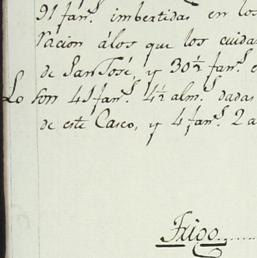 91 fan.s imbertidas en los
racion álos que los cuida
de San José, y 30½ fan.s e
Lo son 41 fan.s 4½ alm.s dadas
de este Casco, y 4 fan.s 2 a
Trigo